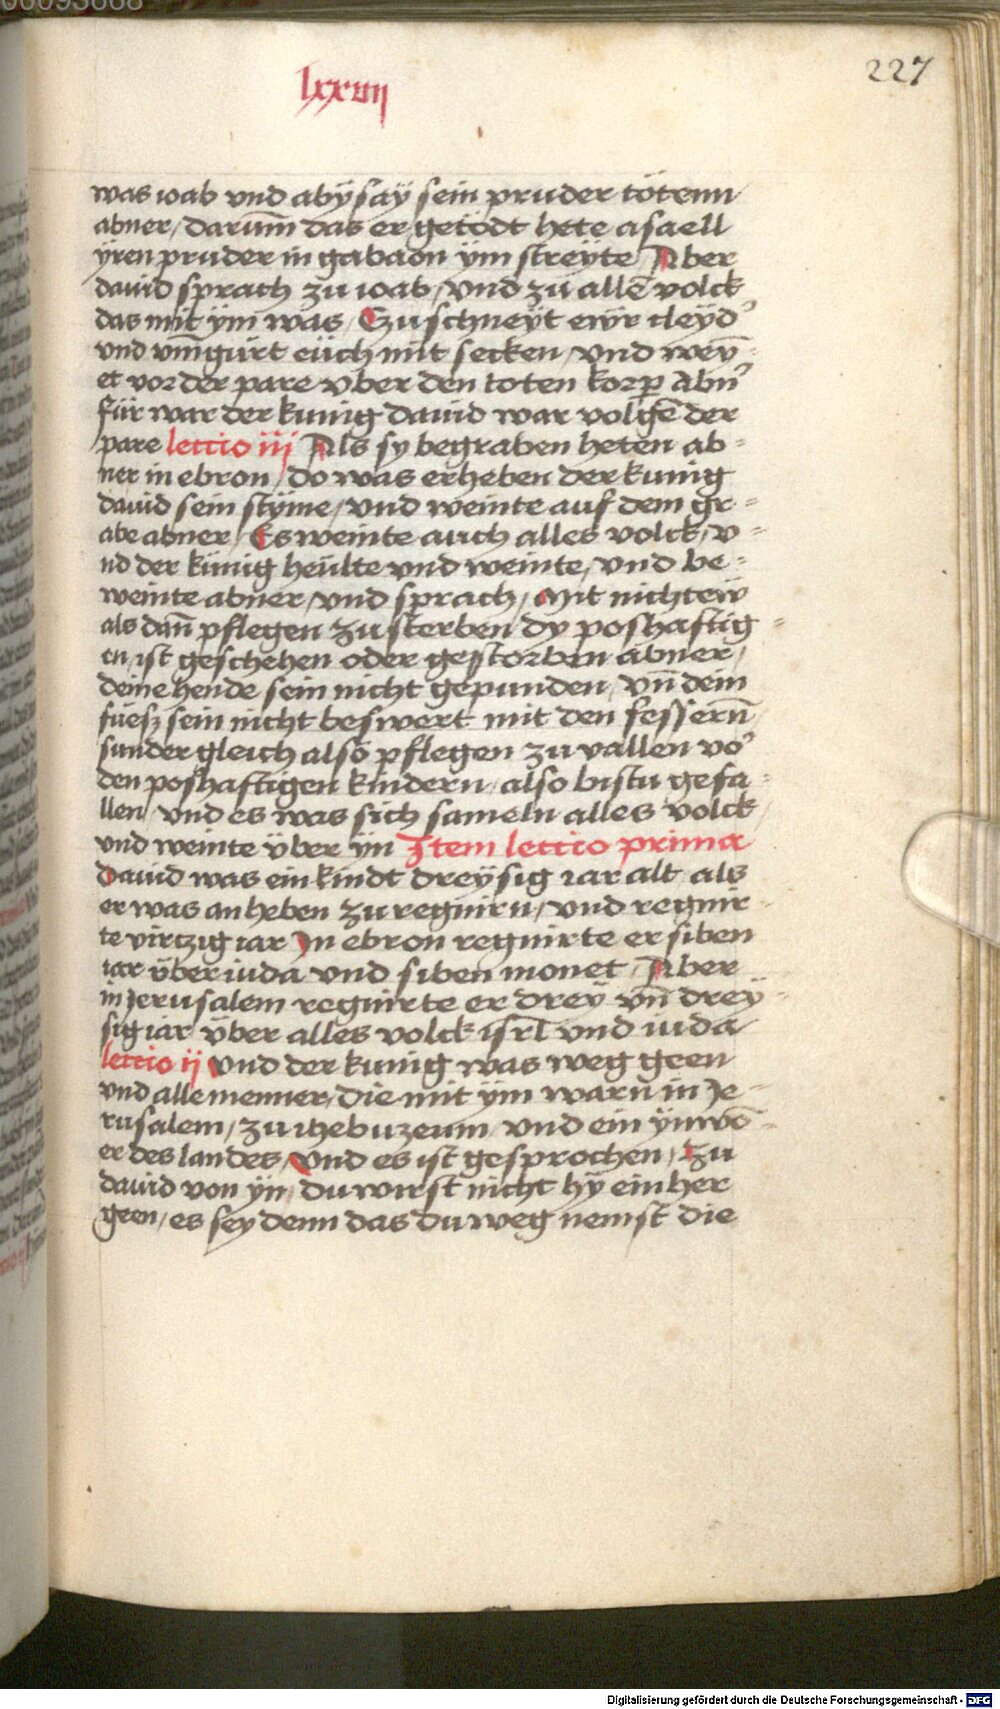 lxxvij
227
was ioab vnd abÿsaÿ sein pruder tötenn
abner / darum̄ das er getödt hete asaell
ÿren pruder in gabaon ÿm streÿte Aber
dauid sprach zu ioab / vnd zu allē volck
das mit ÿm was / Czuschneÿt ewr cleyd'
vnd vm̄gürt eüch mit secken / vnd weÿ=
et vor der pare vber den toten korꝑ Abn'
für war der kunig dauid war volgē der
pare lectio iij Als sy begraben heten ab=
ner in ebron / do was erheben der kunig
dauid sein styme / vnd weinte auf dem gr=
abe abner / Es weinte auch alles volck / v=
nd der künig heülte vnd weinte / vnd be=
weinte abner / vnd sprach / Mit nichtew
als dan̄ pflegen zu sterben dy poshaftig=
en / ist geschehen oder gestorben abner /
deine hende sein nicht gepunden / vn̄ dein
fuesz sein nicht beswert mit den fessern̄
sunder gleich also pflegen zu vallen vo'
den poshaftigen kindern / also bistu gefa=
llen / vnd es was sich sameln alles volck /
vnd weinte über ÿn Item lectio prima
Dauid was ein kindt dreÿsig iar alt als
er was anheben zu regnirn / vnd regnir=
te virtzig iar In ebron regnirte er siben
iar über iuda vnd siben monet / Aber
in Jerusalem regnirte er dreÿ vn̄ dreÿ=
sig iar über alles volck isrl̄ vnd iuda
lectio ij Vnd der kunig was weg geen
vnd alle menner / die mit ÿm warn in Je=
rusalem / zu ihebuzeum vnd ein ÿnwo=
er des landes / Vnd es ist gesprochen / Zu
dauid von ÿn / du wirst nicht hÿ ein her
geen / es sey denn das du weg nemst die
Digitalisierung gefördert durch die Deutsche Forschungsgemeinschaft - DFG